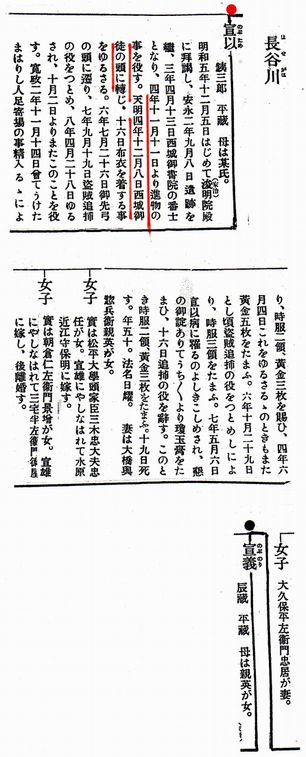 長谷川
はせがは
宣以
のぶため
銕三郎 平蔵 母は某氏。
明和五年十二月五日はじめて浚明院殿
(家治)
に拝謁し、安永二年九月八日遺跡を
継、三年四月十三日西城御書院の番士
となり、四年十一月十一日より進物の
事を役す。天明四年十二月八日西城御
徒の頭に轉じ、十六日布衣を着する事
をゆるさる。六年七月二十六日御先弓
の頭に遷り、七年九月十九日盗賊追捕
の役をつとめ、八年四月二十八日ゆる
され、十月二日よりまたこのことを役
す。寛政二年十一月十四日曾てうけた
まはりし人足寄場の事精入るゝによ
り、時服二領、黄金三枚を賜ひ、四年六
月四日これをゆるさるゝのときもまた
黄金五枚をたまふ。六年十月二十九日
とし頃盗賊追捕の役をつとめしによ
り、時服三領をたまふ。七年五月六日
宣以病に罹るのよしきこしめされ、懇
の御諚ありてうち〱より瓊玉膏をた
まひ、十六日追捕の役を辭す。このと
き時服二領、黄金三枚をたまふ。十九日死
す。年五十。法名日燿。 妻は大橋與
惣兵衞親英が女。
女子 實は松平大學頭家臣三木忠大夫忠
任が女。宣雄にやしなはれて水原
近江守保明に嫁す。
女子 實は朝倉仁左衞門景增が女。宣雄
にやしなはれて三宅半左衞門
に嫁し、後離婚す。
女子 大久保平左衞門忠居が妻。
宣義
のぶのり
辰蔵 平蔵 母は親英が女。